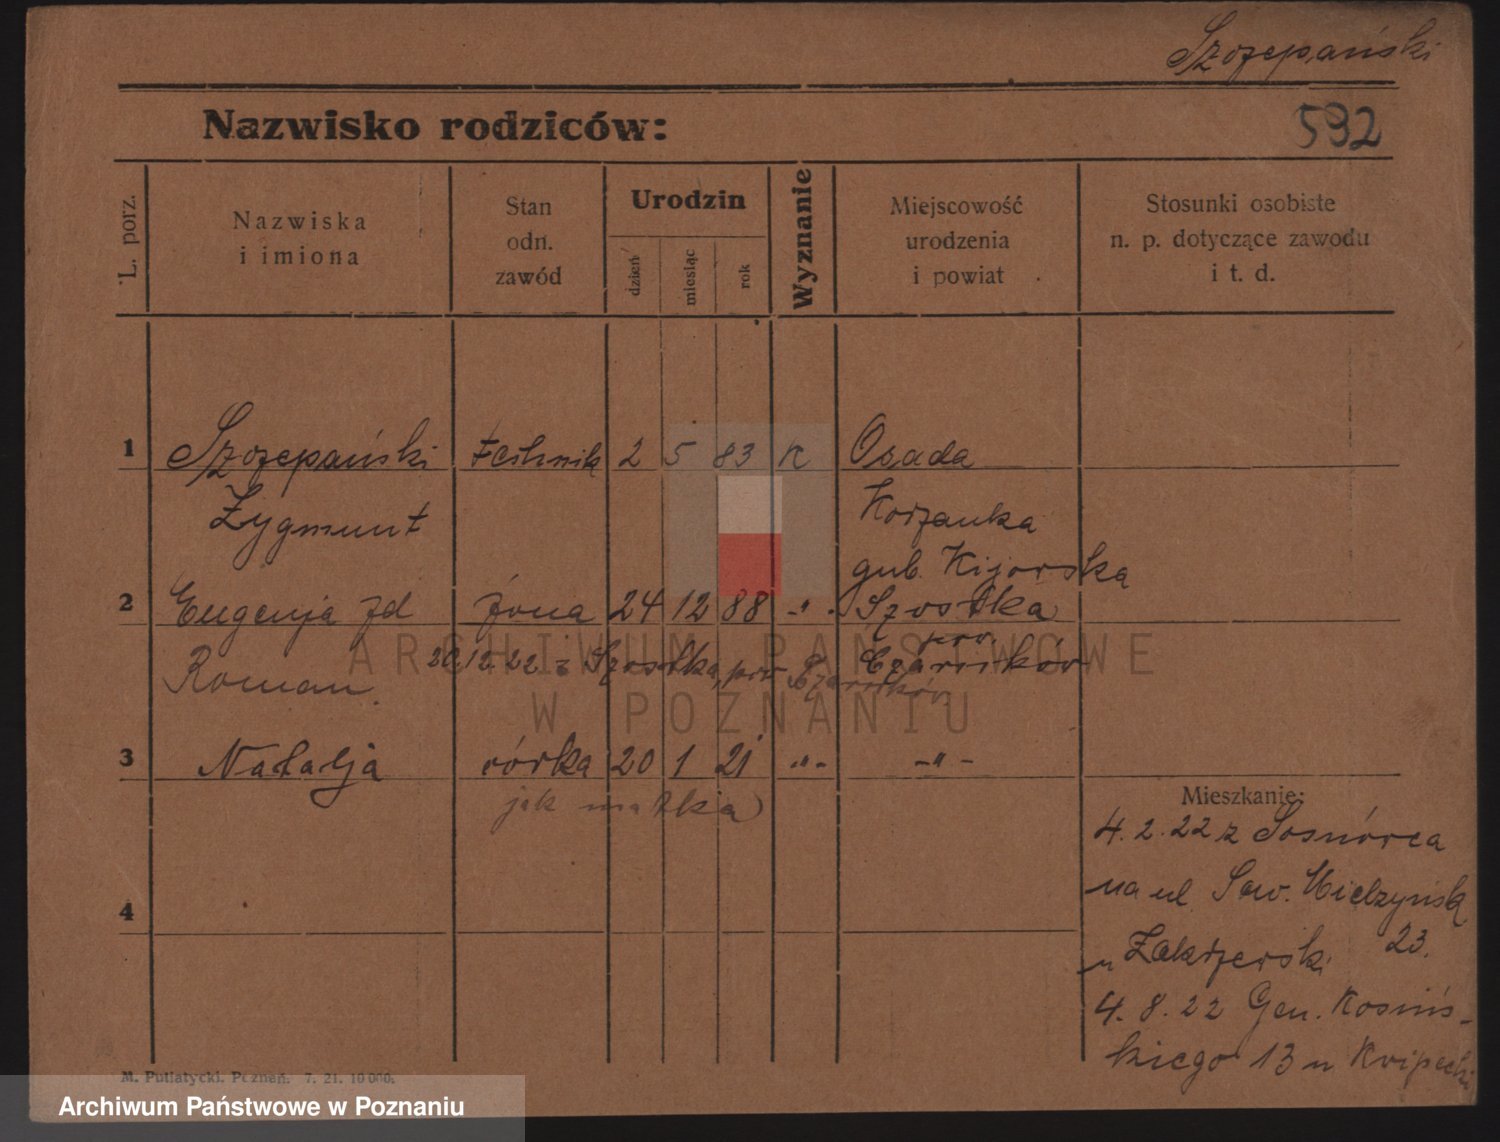 Szczepański
Nazwisko rodziców:
592
L. porz.
Nazwiska
i imiona
Stan
odn.
zawód
Urodzin
dzień
miesiąc
rok
Wyznanie
Miejscowość
urodzenia
i powiat
Stosunki osobiste
n. p. dotyczące zawodu
i t. d.
1 Szczepański technik 2 5 83 K Osada
Zygmunt Korzanka
gub. Kijowska
2 Eugenja zd żona 24 12 88 -"- Szostka
pow.
Roman 22 z Szostka, pow Czarnków Czarnków
3 Natalja córka 20 1 21 -"- -"-
jak matka
Mieszkanie:
4.2.22 z Sosnówca
na ul Sew. Mielżyńsk
23.
u Zakrzerski
4
4.8.22 Gen. Kosińs-
kiego 13 u
M. Putiatycki. Poznań. 7. 21. 10 000.
ARCHIWUM PAŃSTWOWE
W POZNANIU
Archiwum Państwowe w Poznaniu